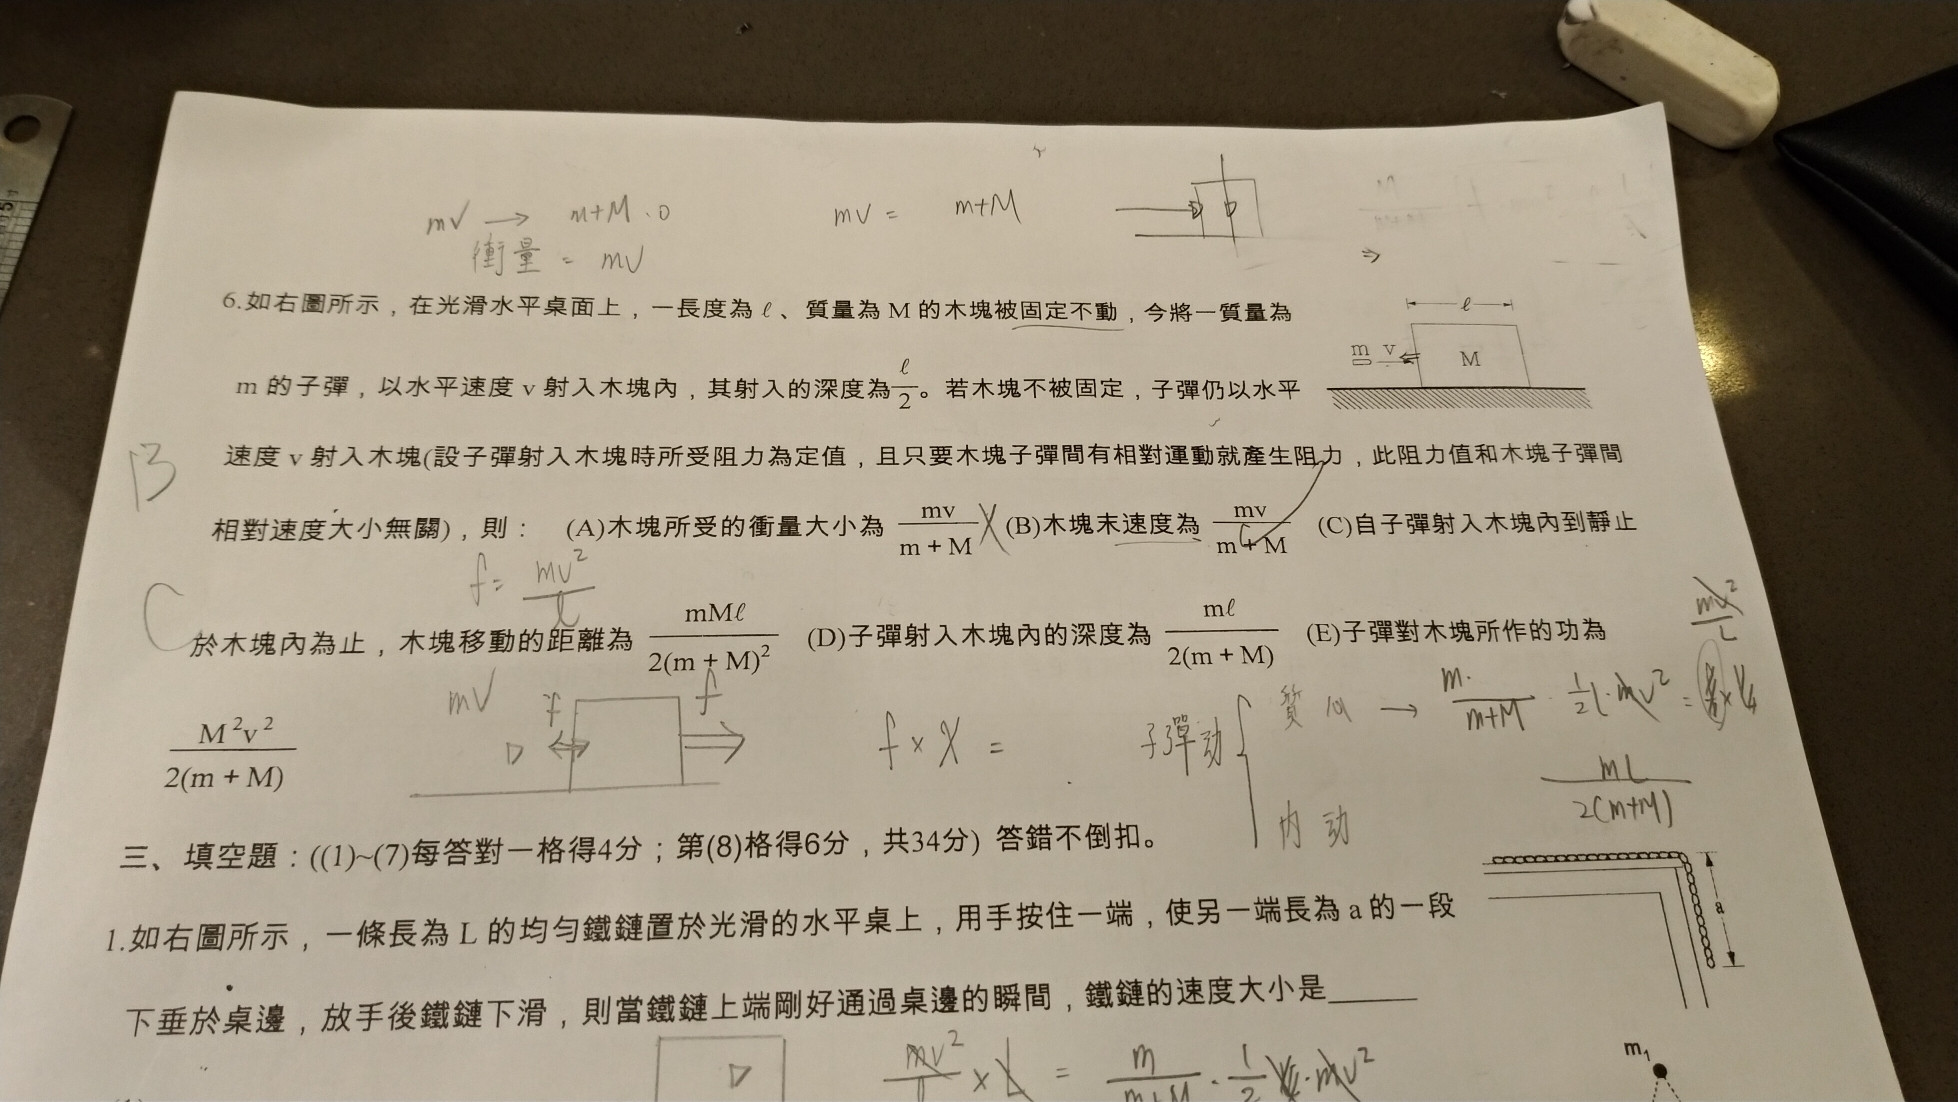 mv → m+M · 0
衝量 = mv
mv = m+M
6.如右圖所示，在光滑水平桌面上，一長度為 ℓ 、質量為 M 的木塊被固定不動，今將一質量為
m 的子彈，以水平速度 v 射入木塊內，其射入的深度為 ℓ/2 。若木塊不被固定，子彈仍以水平
ℓ
m v M
B
速度 v 射入木塊(設子彈射入木塊時所受阻力為定值，且只要木塊子彈間有相對運動就產生阻力，此阻力值和木塊子彈間
相對速度大小無關)，則： (A)木塊所受的衝量大小為 mv/(m + M) (B)木塊末速度為 mv/(m + M) (C)自子彈射入木塊內到靜止
f = mv²/ℓ
C
於木塊內為止，木塊移動的距離為 mMℓ/2(m + M)² (D)子彈射入木塊內的深度為 mℓ/2(m + M) (E)子彈對木塊所作的功為
mv²/L
M²v²/2(m + M)
mv f f
f × X =
子彈動
質心 → m/(m+M) · 1/2
內動
mL/2(m+M)
三、填空題：((1)~(7)每答對一格得4分；第(8)格得6分，共34分) 答錯不倒扣。
1.如右圖所示，一條長為 L 的均勻鐵鏈置於光滑的水平桌上，用手按住一端，使另一端長為 a 的一段
a
下垂於桌邊，放手後鐵鏈下滑，則當鐵鏈上端剛好通過桌邊的瞬間，鐵鏈的速度大小是______
m₁